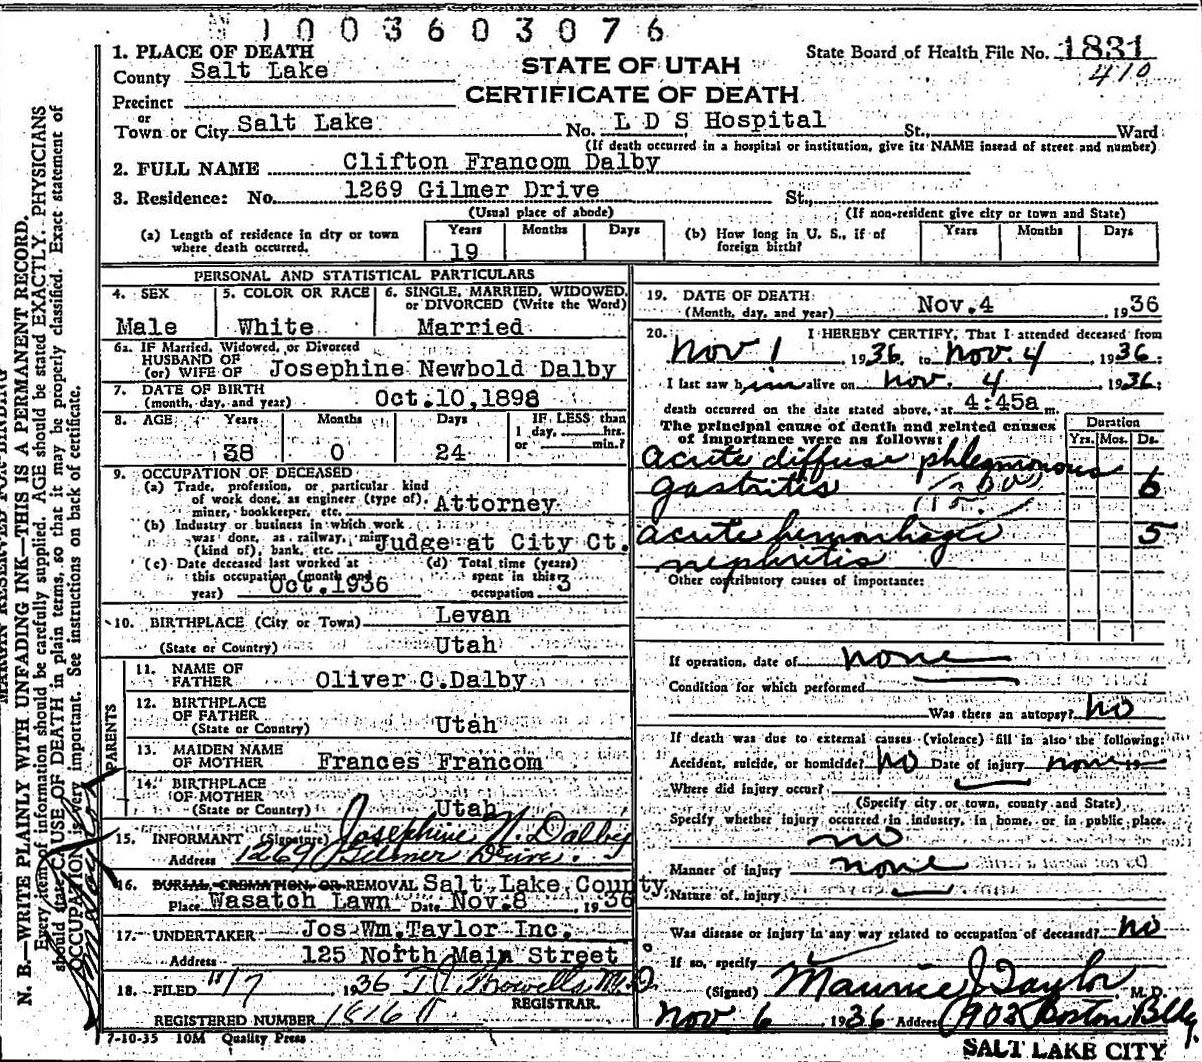 1003603076
1. PLACE OF DEATH
State Board of Health File No. 1831
County Salt Lake
STATE OF UTAH
410
Precinct
CERTIFICATE OF DEATH
or
Town or City Salt Lake No. L D S Hospital St., Ward
(If death occurred in a hospital or institution, give its NAME instead of street and number)
2. FULL NAME Clifton Francom Dalby
3. Residence: No. 1269 Gilmer Drive St.,
(Usual place of abode) (If non-resident give city or town and State)
(a) Length of residence in city or town where death occurred. Years 19 Months Days
(b) How long in U. S., if of foreign birth? Years Months Days
PERSONAL AND STATISTICAL PARTICULARS
4. SEX 5. COLOR OR RACE 6. SINGLE, MARRIED, WIDOWED, or DIVORCED (Write the Word)
Male White Married
6a. IF Married, Widowed, or Divorced
HUSBAND OF
(or) WIFE OF Josephine Newbold Dalby
7. DATE OF BIRTH
(month, day, and year) Oct.10,1898
8. AGE Years Months Days IF LESS than
1 day, hrs.
or min.?
38 0 24
9. OCCUPATION OF DECEASED
(a) Trade, profession, or particular kind
of work done, as engineer (type of),
miner, bookkeeper, etc. Attorney
(b) Industry or business in which work
was done, as railway, mine
(kind of), bank, etc. Judge at City Ct.
(c) Date deceased last worked at
this occupation (month and
year) Oct.1936
(d) Total time (years)
spent in this
occupation 3
10. BIRTHPLACE (City or Town) Levan
(State or Country) Utah
PARENTS
11. NAME OF
FATHER Oliver C.Dalby
12. BIRTHPLACE
OF FATHER
(State or Country) Utah
13. MAIDEN NAME
OF MOTHER Frances Francom
14. BIRTHPLACE
OF MOTHER
(State or Country) Utah
15. INFORMANT (Signature) Josephine N. Dalby
Address 1269 Gilmer Drive.
16. BURIAL, CREMATION, OR REMOVAL Salt Lake County
Place Wasatch Lawn Date Nov.8 , 1936
17. UNDERTAKER Jos Wm.Taylor Inc.
Address 125 North Main Street
18. FILED 11/7 1936
REGISTRAR.
REGISTERED NUMBER
7-10-35 10M Quality Press
19. DATE OF DEATH
(Month, day, and year) Nov.4 , 1936
20. I HEREBY CERTIFY, That I attended deceased from
Nov 1 1936, to Nov. 4, 1936;
I last saw him alive on Nov. 4, 1936;
death occurred on the date stated above, at 4:45a m.
The principal cause of death and related causes
of importance were as follows:
Duration
Yrs. Mos. Ds.
acute diffuse phlegmonous
gastritis 6
acute hemorrhagic 5
nephritis
Other contributory causes of importance:
If operation, date of none
Condition for which performed
Was there an autopsy? no
If death was due to external causes (violence) fill in also the following:
Accident, suicide, or homicide? no Date of injury none 19
Where did injury occur?
(Specify city or town, county and State)
Specify whether injury occurred in industry, in home, or in public place.
no
Manner of injury none
Nature of injury
Was disease or injury in any way related to occupation of deceased? no
If so, specify
(Signed) Maurice J Taylor M. D.
Nov 6, 1936 Address 902 Boston Bldg
SALT LAKE CITY
N. B.—WRITE PLAINLY WITH UNFADING INK—THIS IS A PERMANENT RECORD.
Every item of information should be carefully supplied. AGE should be stated EXACTLY. PHYSICIANS
should state CAUSE OF DEATH in plain terms, so that it may be properly classified. Exact statement of
OCCUPATION is very important. See instructions on back of certificate.